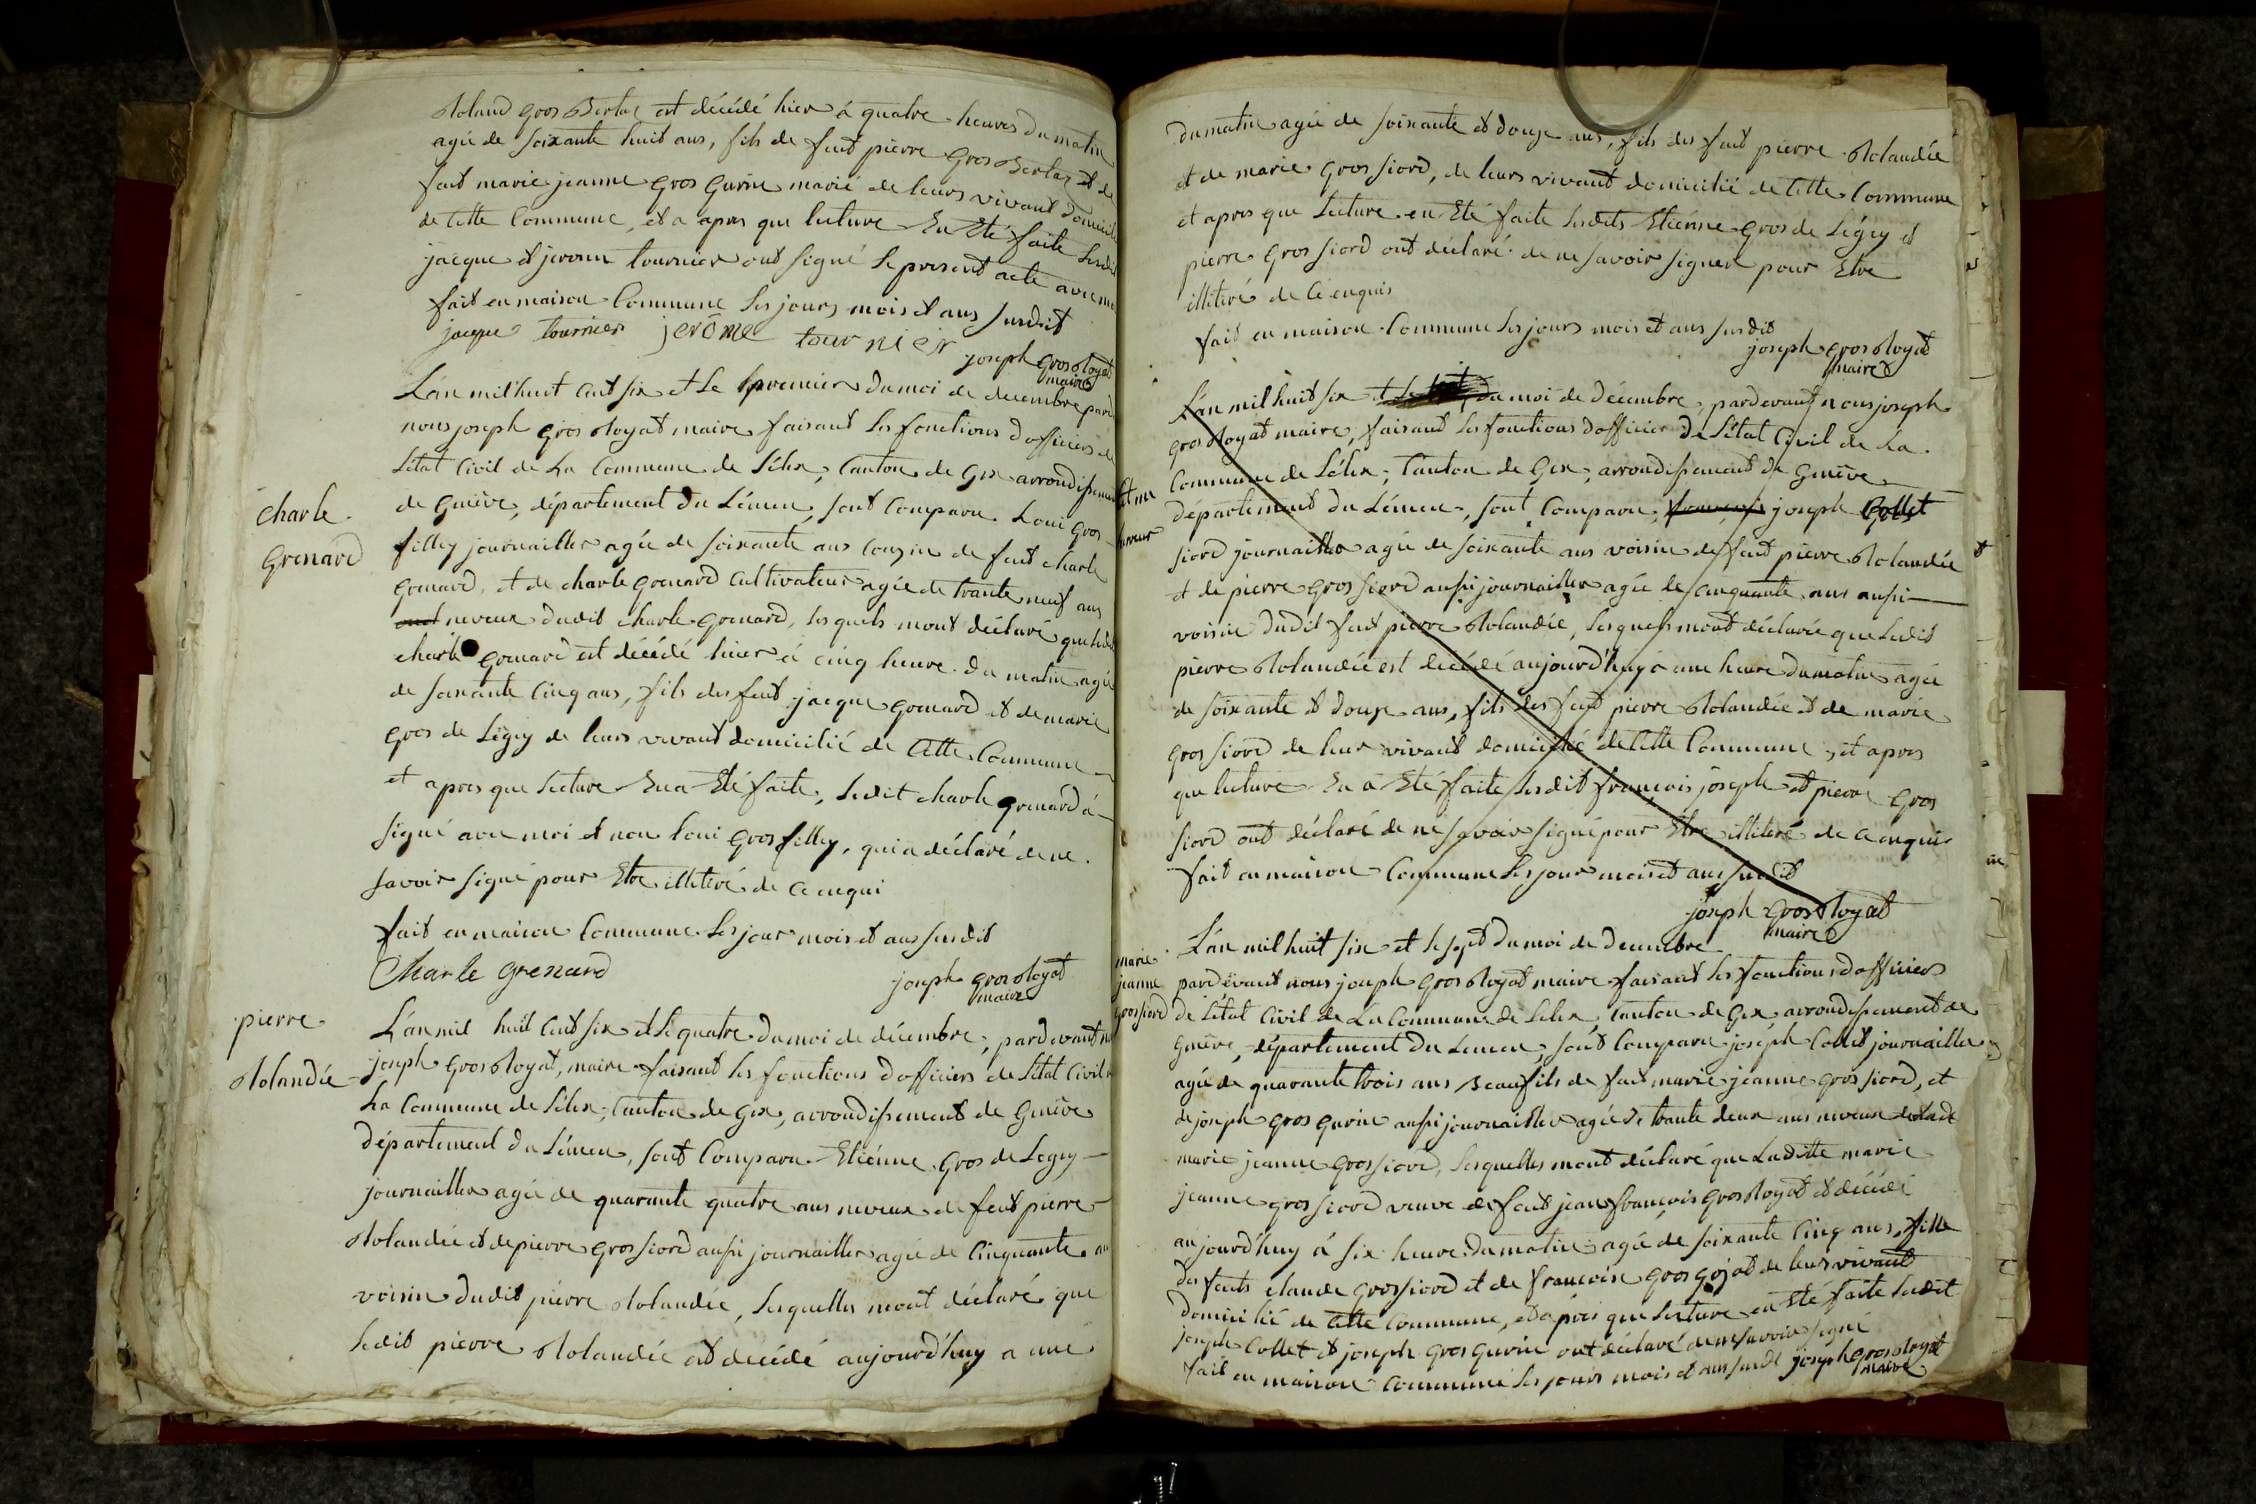 Roland gros Berlaz est décédé hier á quatre heures du matin
agée de soixante huit ans, fils de feut pierre gros Berlaz et de
feut marie jeanne gros gurin marié de leurs vivant domicilié
de Cette Commune, et a apres que lecture En Eté faite Lesdit
jacque et jerome tournier ont signé le present acte avec moi
fait en maison Commune les jours mois et ans susdit
jacque tournier jerôme tournier joseph gros Royat
maire
L'an mil huit cent six et Le premier du moi de decembre pard
nous joseph gros Royat maire faisant les fonctions d'officiers de
L'état Civil de La Commune de Lélex, Canton de Gex arrondissement
de Genève, département du Léman, sont Comparu Loui gros
charle
grenard
filley journaillier agée de soixante ans Cousin de feut charle
grenard, et de charle grenard Cultivateur agée de trante neuf ans
neveux dudit charle grenard, lesquels mont déclaré que ledit
charle grenard est décédé hier á cinq heure du matin agée
de soixante Cinq ans, fils des feut jacque grenard et de marie
gros de Légey de leurs vivant domicilié de Cette Commune
et apres que Lecture En a Eté faite, Ledit charle grenard á
signé avec moi et non Loui gros filley, qui a déclaré de ne
savoir signé pour Etre illiteré de Ce enqui
fait en maison Commune les jour mois et ans susdit
Charle grenard joseph gros Royat
maire
pierre
Rolandée
L'an mil huit Cent six et Le quatre du moi de décembre, pardevant
joseph gros Royat, maire faisant les fonctions d'officiers de L'état Civil
La Commune de Lélex, Canton de Gex, arrondissement de Genêve
département du Léman, sont Comparu Etiénne gros de Legey
journaillier agée de quarante quatre ans neveux de feut pierre
Rolandée et de pierre gros siord aussi journaillier agée de Cinquante an
voisin dudit pierre Rolandée, Lesquelles mont déclaré que
Ledit pierre Rolandée est décédé aujourd'huy a une
du matin agée de soixante et douze ans, fils des feut pierre Rolandée
et de marie gros siord, de leurs vivant domicilié de Cette Commune
et apres que Lecture en Eté faite Lesdits Etiénne gros de Légey et
pierre gros siord ont déclaré de ne savoir signer pour Etre
illiteré de Ce enquis
fait en maison Commune les jours mois et ans susdit
joseph gros Royat
maire
L'an mil huit six et du moi de Décembre, pardevant nous joseph
gros Royat maire, faisant les fonctions d'officier de L'état Civil de La
Commune de Lélex, Canton de Gex, arrondissement de Genêve
département du Léman, sont Comparu, joseph Collet
siord journaillier agée de soixante ans voisin de feut pierre Rolandée
et de pierre gros siord aussi journaillier agée de Cinquante ans aussi
voisin dudit feut pierre Rolandée, Lesquels mont déclarée que Ledit
pierre Rolandée est decédé aujourd'huy á une heure du matin agée
de soixante et douze ans, fils des feut pierre Rolandée et de marie
gros siord de leur vivant domicilié de Cette Commune, et apres
que lecture En á Eté faite Lesdit francois joseph et pierre gros
siord ont déclaré de ne savoir signé pour Etre illiteré de Ce enquis
fait en maison Commune les jour mois et ans susdit
joseph gros Royat
maire
marie
jeanne
gros siord
L'an mil huit six et le sept du moi de Decembre
pardevant nous joseph gros Royat maire faisant les fonctions d'officiers
de L'état Civil de La Commune de Lelex, Canton de Gex arrondissement de
Genêve, département du Leman, sont Comparu joseph Collet journaillier
agée de quarante trois ans Beaufils de feut marie jeanne gros siord, et
de joseph gros gurin aussi journaillier agée de trante deux ans neveux de
marie jeanne gros siord, Lesquelles mont déclaré que Laditte marie
jeanne gros siord veuve de feut jean francois gros Royat et décédé
aujourd'huy á six heure du matin agée de soixante Cinq ans, fille
des feuts claude gros siord et de francoise gros gojat de leurs vivant
domicilié de Cette Commune, et apres que Lecture en Eté faite Ledit
joseph Collet et joseph gros gurin ont déclaré de ne savoir signé
fait en maison Commune les jours mois et ans susdit joseph gros Royat
maire